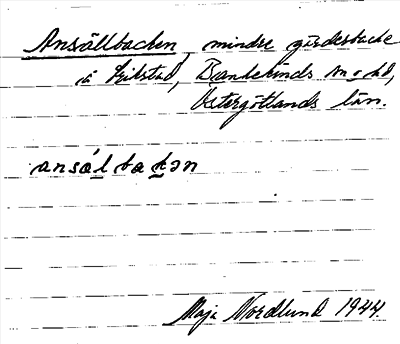 Ansällbacken, mindre gärdesbacke
å Erikstad, Bankekinds sn o hd,
Östergötlands län.
ansálbakən
Maja Nordlund 1944.